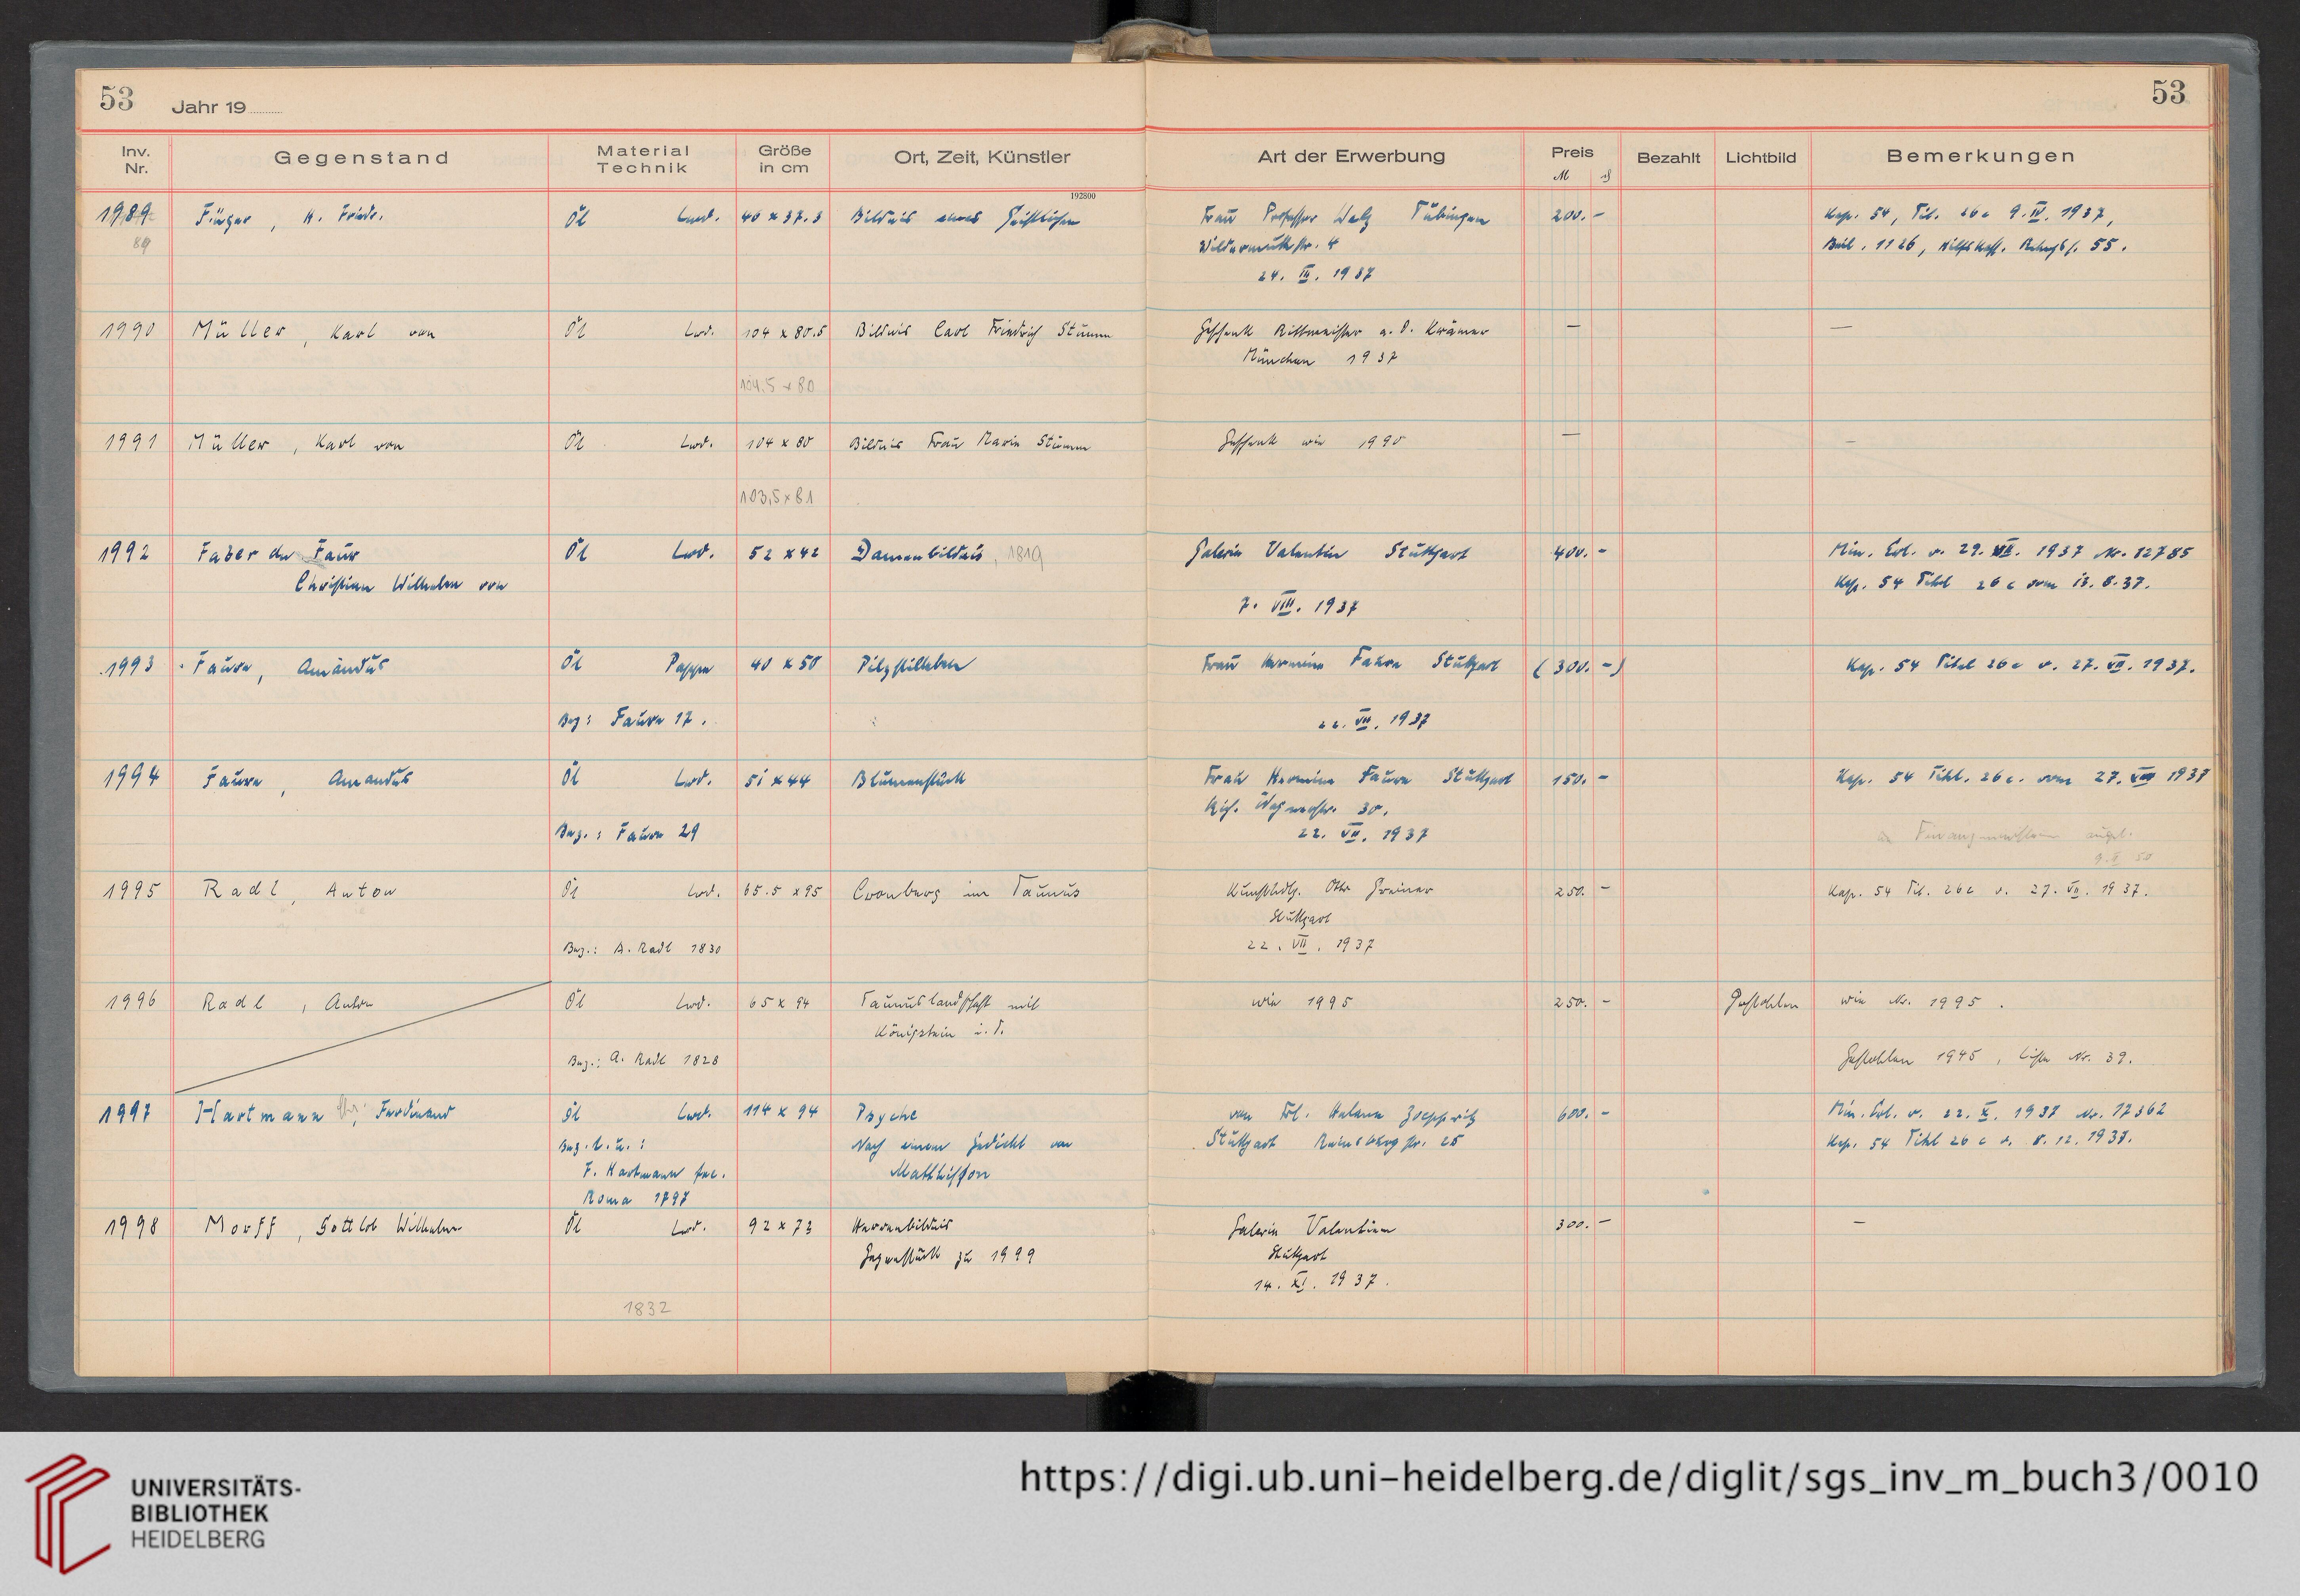 53 Jahr 19 53
Inv. Nr. Gegenstand Material Technik Größe in cm Ort, Zeit, Künstler Art der Erwerbung Preis M Bezahlt Lichtbild Bemerkungen
192800
1989 Füger, H. Friedr. Öl Lwd. 46 x 37.3 Bildnis eines Geistlichen Frau Professor Walz Tübingen 200.- Kap. 54, Tit. 26c 9. IV. 1937,
89 Wildermuthstr. 4 Beil. 1126, 55.
24. III. 1937
1990 Müller, Karl von Öl Lwd. 104 x 80.5 Bildnis Carl Friedrich Stumm Geschenk Rittmeister a. D. Krämer — —
München 1937
104.5 x 80
1991 Müller, Karl von Öl Lwd. 104 x 80 Bildnis Frau Marie Stumm Geschenk wie 1990 — —
103,5 x 81
1992 Faber du Faur Öl Lwd. 52 x 42 Damenbildnis, 1819 Galerie Valentin Stuttgart 400.- Min. Erl. v. 29. VII. 1937 Nr. 12785
Christian Wilhelm von Kap. 54 Titel 26 c vom 13. 8. 37.
7. VIII. 1937
1993 Faure, Amandus Öl Pappe 40 x 50 Pilzstilleben Frau Hermine Faure Stuttgart (300.-) Kap. 54 Titel 26c v. 27. VII. 1937.
Bez: Faure 17. 22. VII. 1937
1994 Faure, Amandus Öl Lwd. 51 x 44 Blumenstück Frau Hermine Faure Stuttgart 150.- Kap. 54 Titel. 26c. vom 27. VII 1937
Rich. Wagnerstr. 30.
Bez.: Faure 29 22. VII. 1937
1995 Radl, Anton Öl Lwd. 65.5 x 95 Cronberg im Taunus Kunsthdlg. Otto Greiner 250.- Kap. 54 Tit. 26c v. 27. VII. 1937.
Stuttgart
Bez.: A. Radl 1830 22. VII. 1937
1996 Radl, Anton Öl Lwd. 65 x 94 Taunuslandschaft mit wie 1995 250.- Gestohlen wie Nr. 1995.
Königstein i. T.
Bez.: A. Radl 1828 Gestohlen 1945, Liste Nr. 39.
1997 Hartmann, Ferdinand Öl Lwd. 114 x 94 Psyche von Frl. Helene Zoeppritz 600.- Min. Erl. v. 22. X. 1937 Nr. 17362
Bez. l. u.: Nach einem Gedicht von Stuttgart Reinsburgstr. 25 Kap. 54 Titel 26 c v. 8. 12. 1937.
F. Hartmann fec. Matthisson
Roma 1797
1998 Morff, Gottlob Wilhelm Öl Lwd. 92 x 73 Herrenbildnis Galerie Valentien 300.- —
Gegenstück zu 1999 Stuttgart
14. XI. 1937.
1832
UNIVERSITÄTS-
BIBLIOTHEK
HEIDELBERG
https://digi.ub.uni-heidelberg.de/diglit/sgs_inv_m_buch3/0010